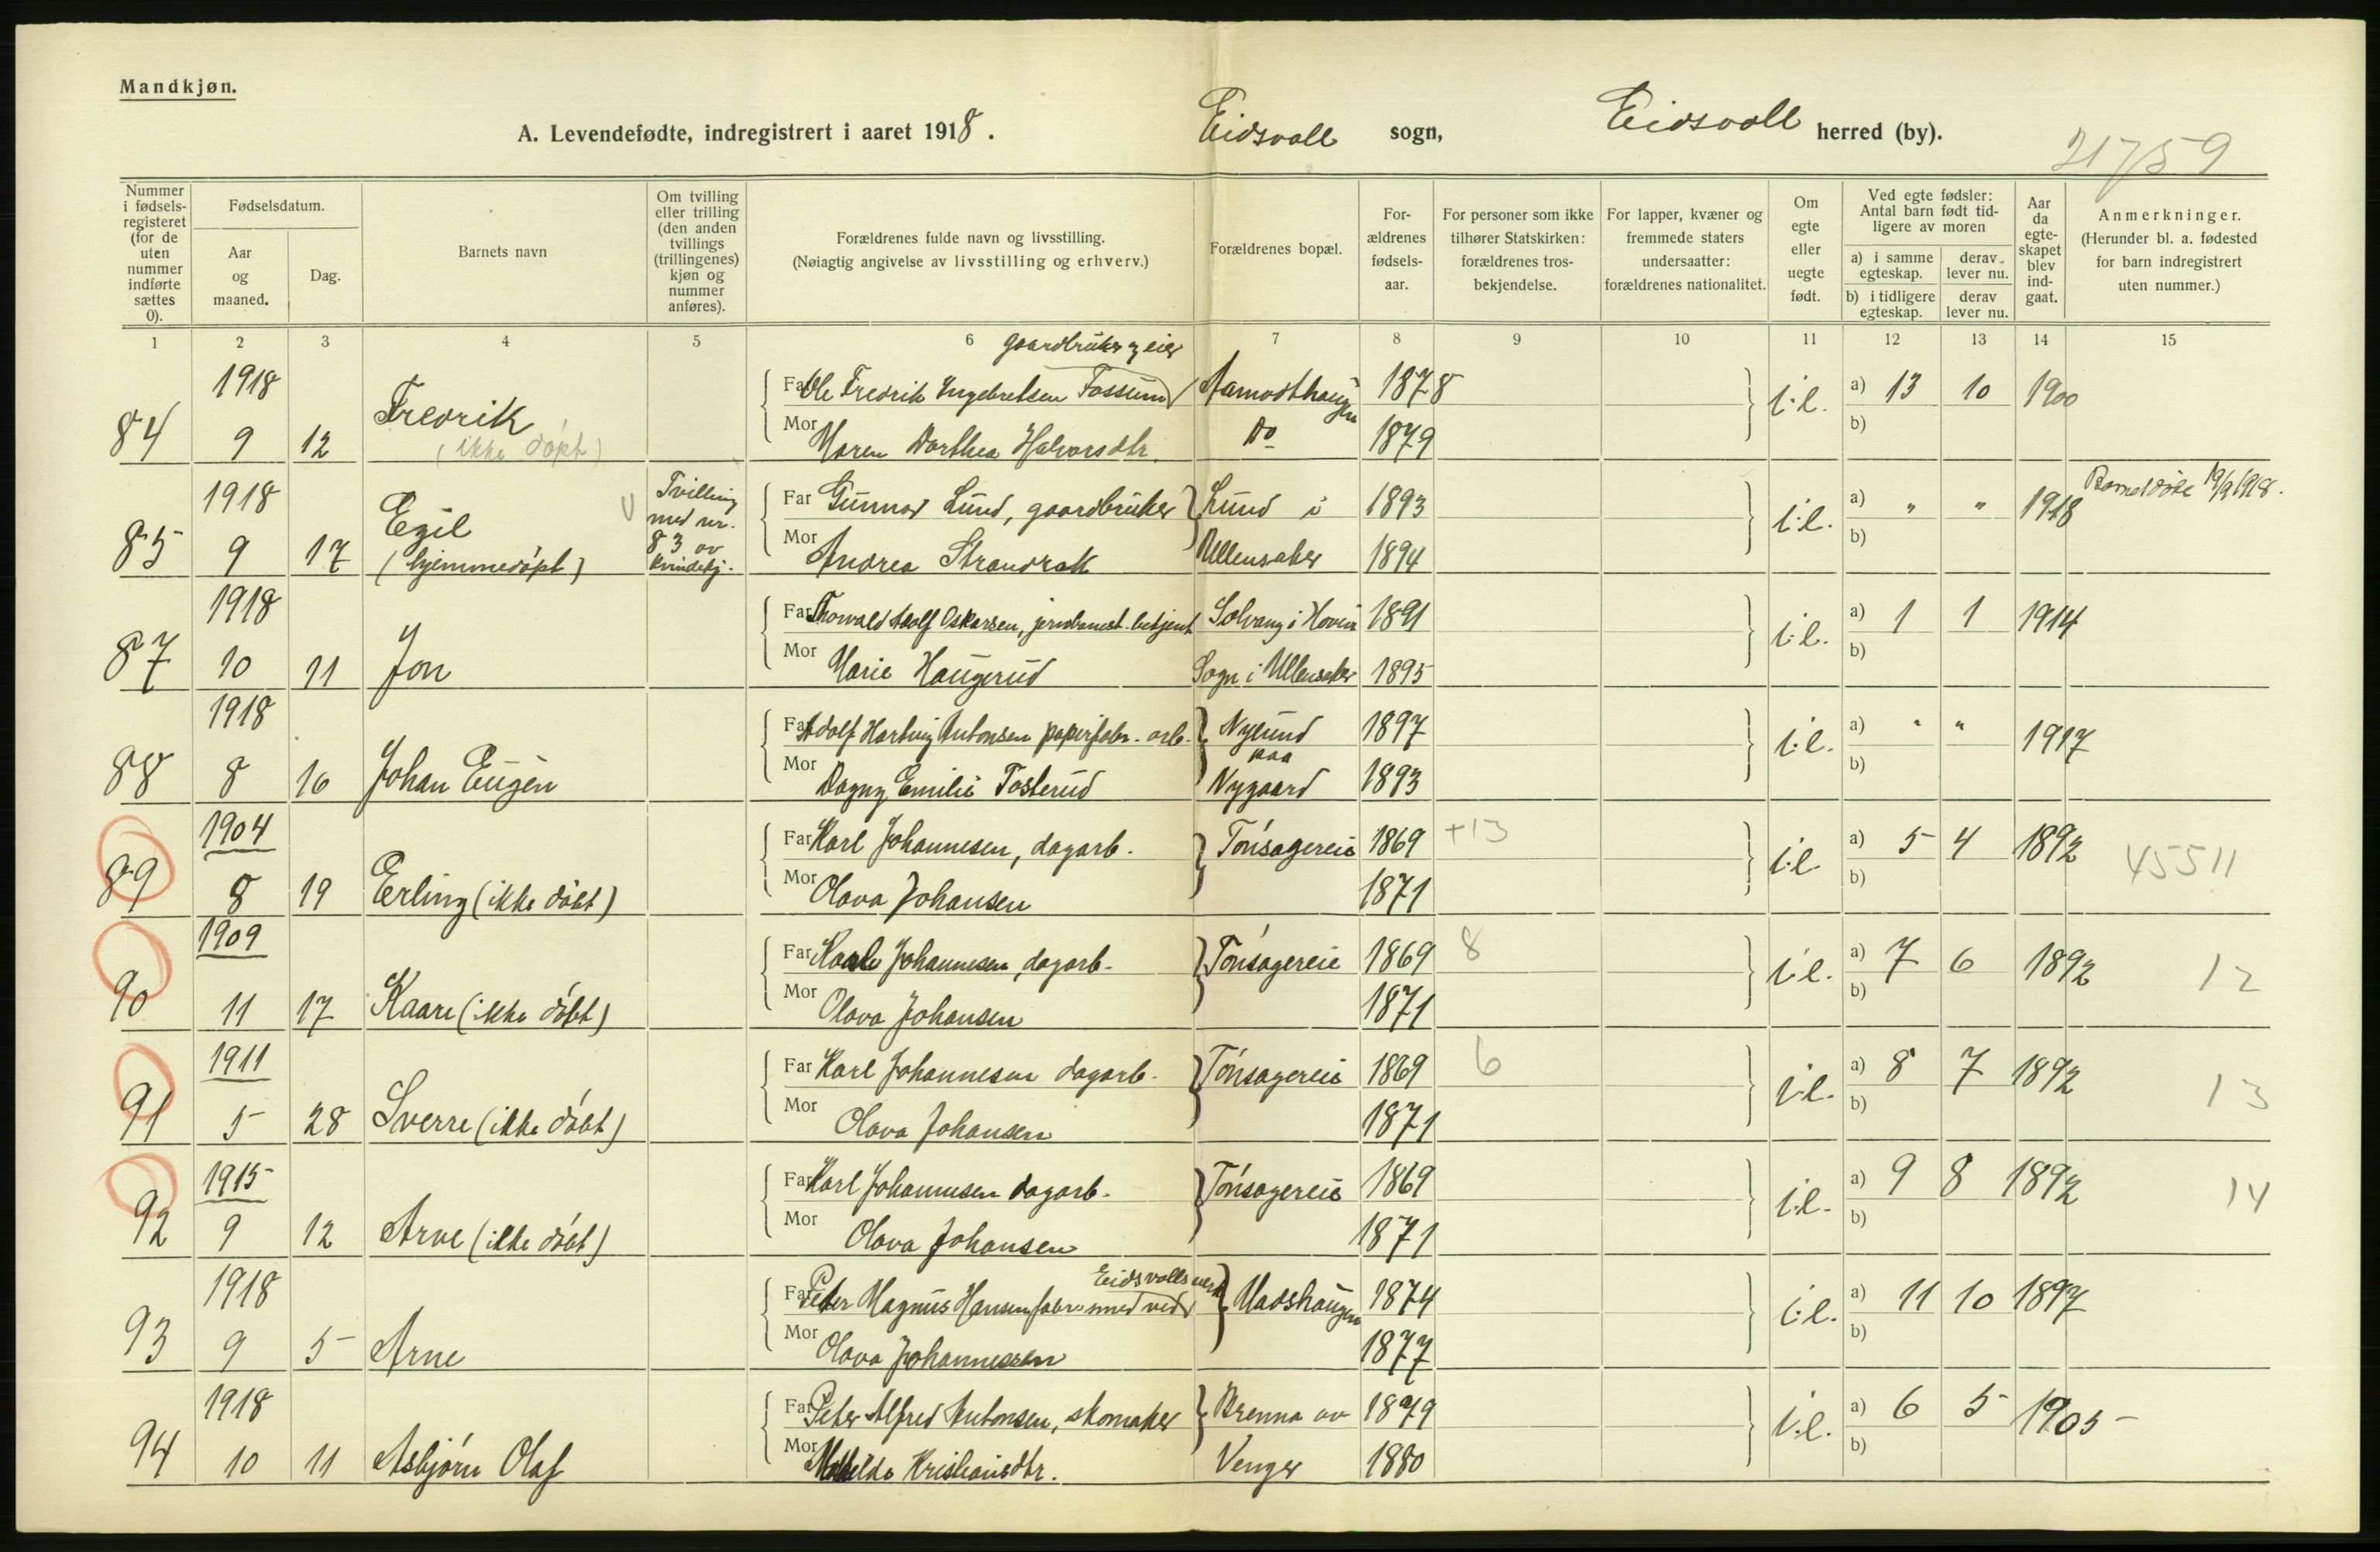 Mandkjøn.
A. Levendefødte, indregistrert i aaret 1918. Eidsvoll sogn, Eidsvoll herred (by).
21759
Nummer i fødsels-registeret (for de uten nummer indførte sættes 0).
Fødselsdatum.
Aar og maaned.
Dag.
Barnets navn
Om tvilling eller trilling (den anden tvillings (trillingenes) kjøn og nummer anføres).
Forældrenes fulde navn og livsstilling.
(Nøiagtig angivelse av livsstilling og erhverv.)
Forældrenes bopæl.
For-ældrenes fødsels-aar.
For personer som ikke tilhører Statskirken: forældrenes tros-bekjendelse.
For lapper, kvæner og fremmede staters undersaatter: forældrenes nationalitet.
Om egte eller uegte født.
Ved egte fødsler: Antal barn født tid-ligere av moren
a) i samme egteskap. derav lever nu.
b) i tidligere egteskap. derav lever nu.
Aar da egte-skapet blev ind-gaat.
Anmerkninger.
(Herunder bl. a. fødested for barn indregistrert uten nummer.)
1 2 3 4 5 6 7 8 9 10 11 12 13 14 15
gaardbruker, eier
1918 Far Ole Fredrik Engebretsen Fossum Aamodthaugen 1878 i.e. a) 13 10 1900
84 9 12 Fredrik (ikke døpt) Mor Maren Dorthea Halvorsdtr. Do 1879 b)
1918 Tvilling med nr. 83 av kvindekj. Far Gunnar Lund, gaardbruker Lund i 1893 i.e. a) " " 1918 19/9 1918.
85 9 17 Egil (hjemmedøpt) Mor Andrea Strandrak Ullensaker 1894 b)
1918 Far Thorvald Adolf Oskarsen, jernbanest. betjent Solvang i Hovin 1891 i.e. a) 1 1 1914
87 10 11 Jon Mor Marie Haugerud Sogn i Ullensaker 1895 b)
1918 Far Adolf Hartvig Antonsen papirfabr. arb. Nylund paa 1897 i.e. a) " " 1917
88 8 16 Johan Eugén Mor Dagny Emilie Tosterud Nygaard 1893 b)
1904 Far Karl Johannesen, dagarb. Tønsagereie 1869 +13 i.e. a) 5 4 1892 45511
89 8 19 Erling (ikke døbt) Mor Olava Johansen 1871 b)
1909 Far Karl Johannesen, dagarb. Tønsagereie 1869 8 i.e. a) 7 6 1892 12
90 11 17 Kaare (ikke døbt) Mor Olava Johansen 1871 b)
1911 Far Karl Johannesen dagarb. Tønsagereie 1869 6 i.e. a) 8 7 1892 13
91 5 28 Sverre (ikke døbt) Mor Olava Johansen 1871 b)
1915 Far Karl Johannesen dagarb. Tønsagereie 1869 i.e. a) 9 8 1892 14
92 9 12 Arne (ikke døbt) Mor Olava Johansen 1871 b)
Eidsvolls verk
1918 Far Peter Magnus Hansen, fabr. smed ved Madshaugen 1874 i.e. a) 11 10 1897
93 9 5 Arne Mor Olava Johannessen 1877 b)
1918 Far Peter Alfred Antonsen, skomaker Brenna av 1879 i.e. a) 6 5 1905
94 10 11 Asbjørn Olaf Mor Mathilde Kristiansdtr. Venger 1880 b)